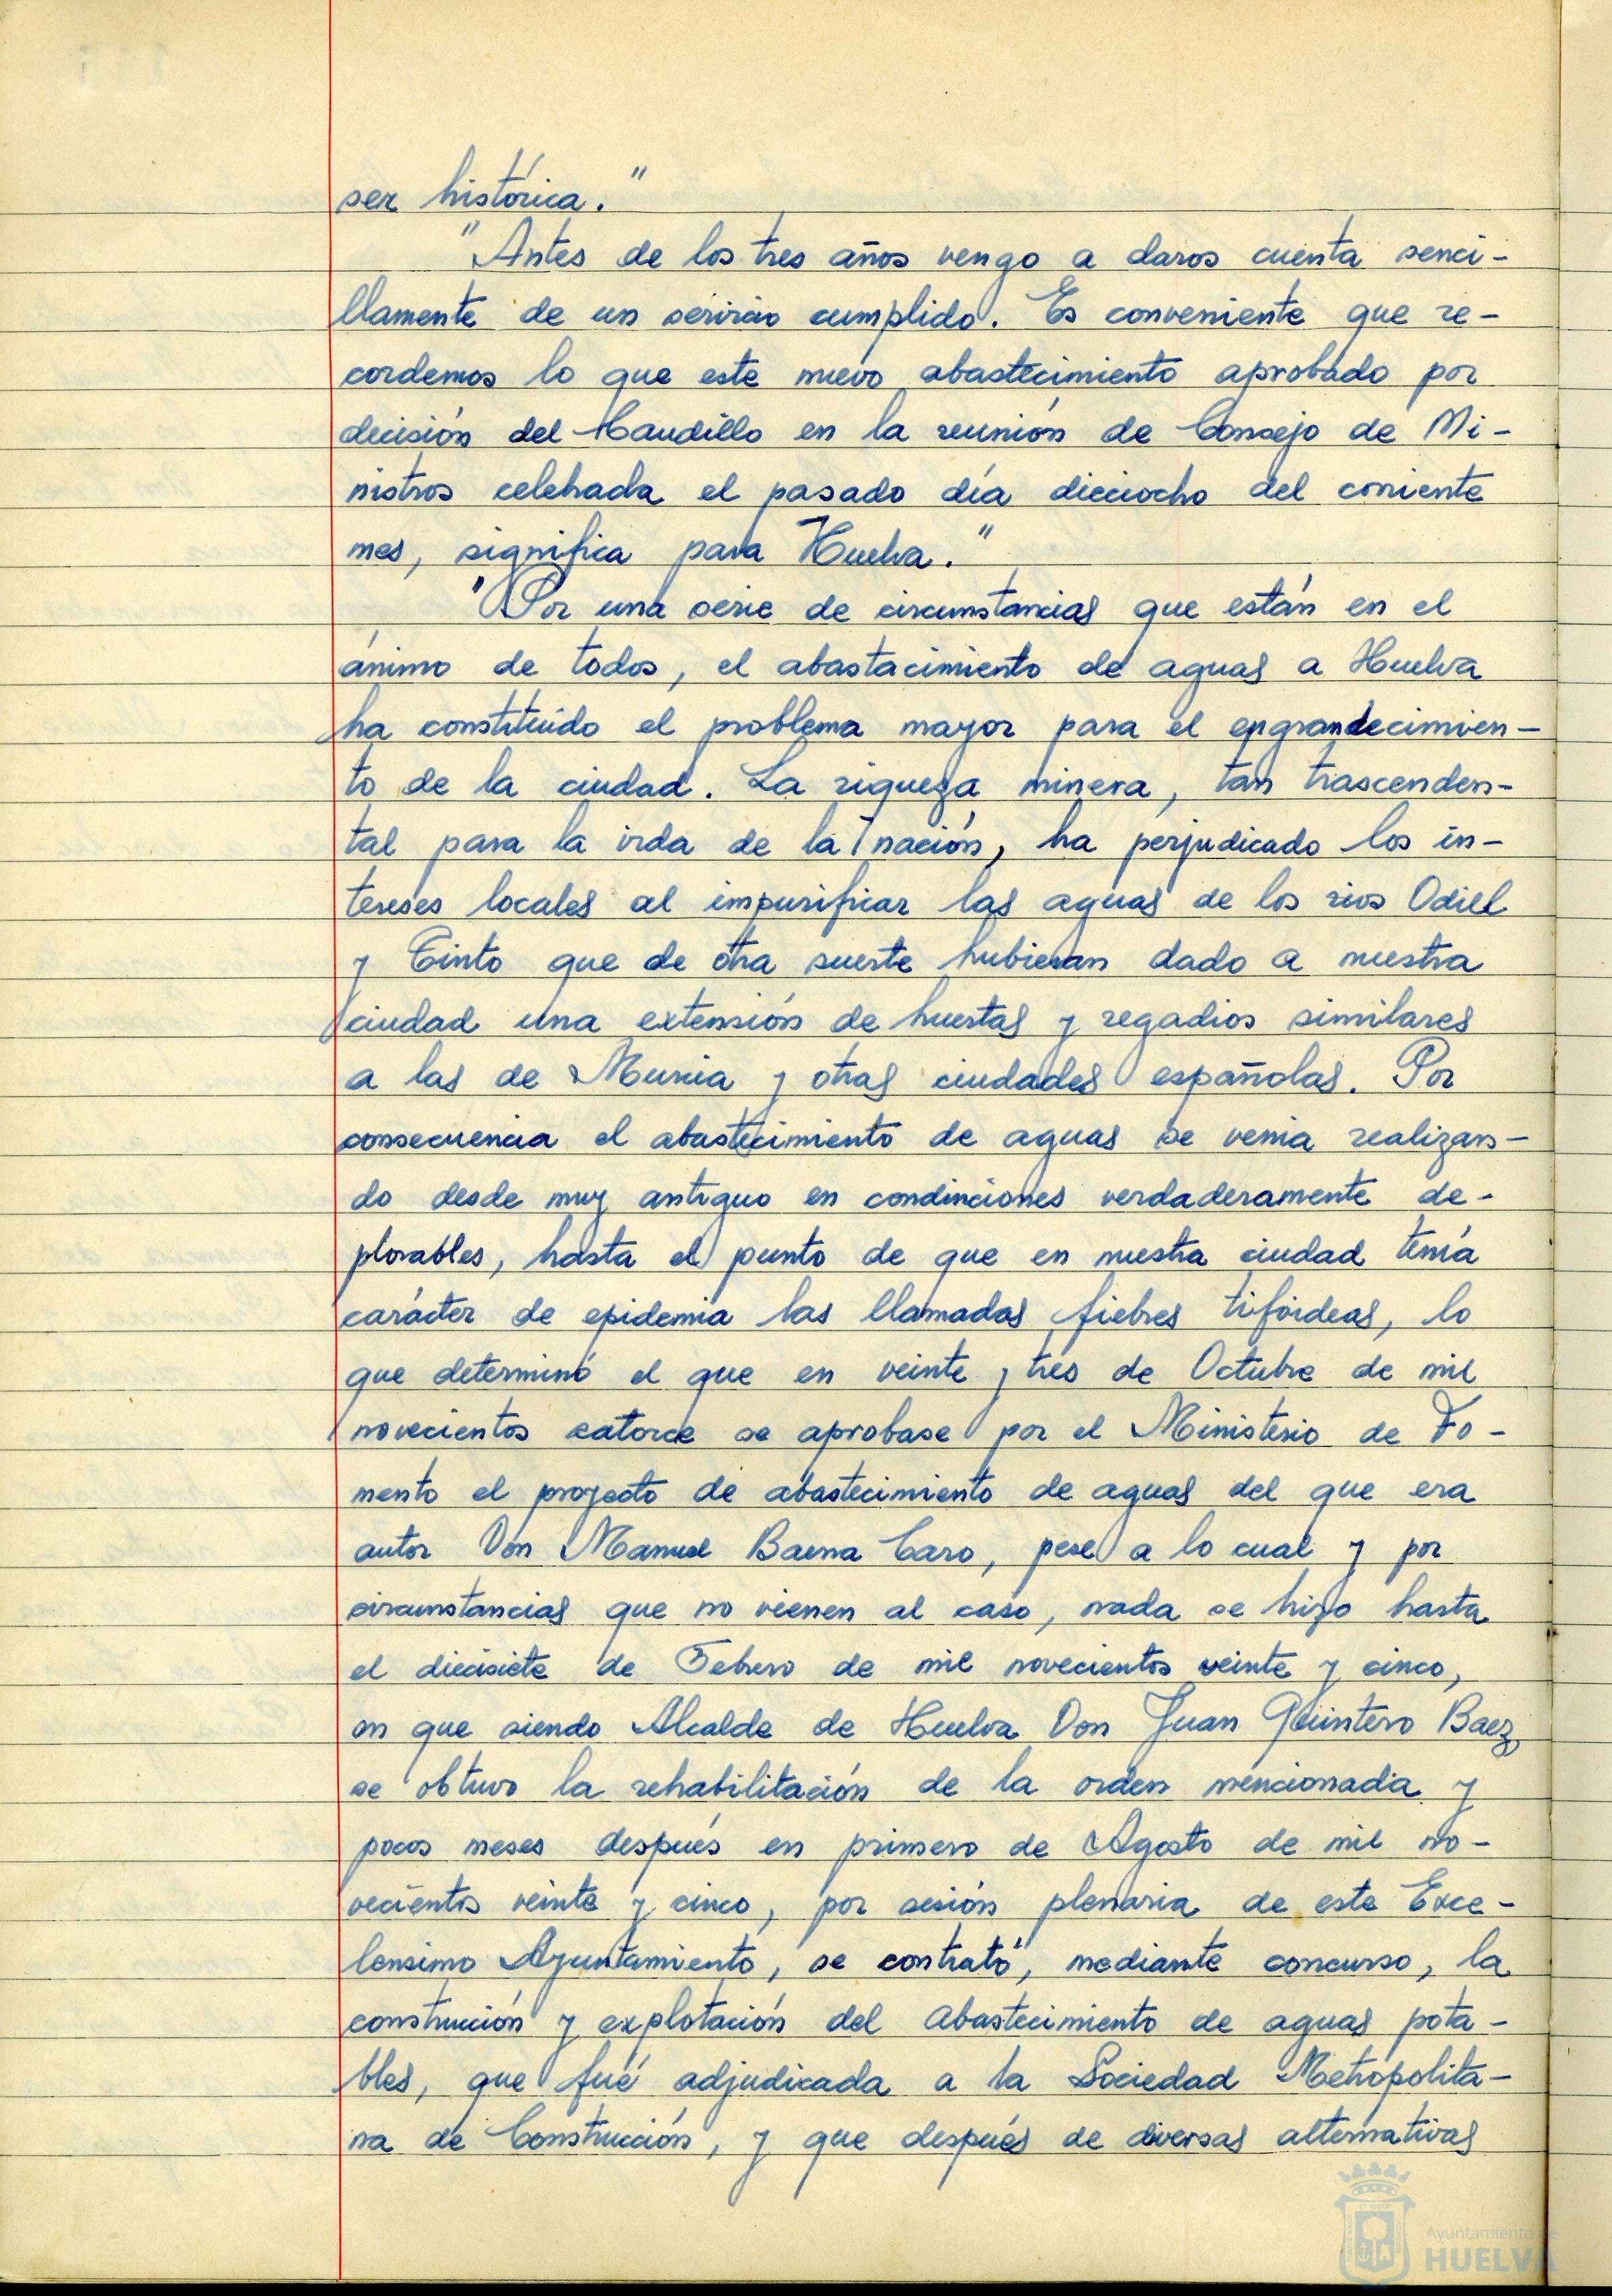 ser histórica."
"Antes de los tres años vengo a daros cuenta senci-
llamente de un servicio cumplido. Es conveniente que re-
cordemos lo que este nuevo abastecimiento aprobado por
decisión del Caudillo en la reunión de Consejo de Mi-
nistros celebrada el pasado día dieciocho del corriente
mes, significa para Huelva."
"Por una serie de circunstancias que están en el
ánimo de todos, el abastacimiento de aguas a Huelva
ha constituido el problema mayor para el engrandecimien-
to de la ciudad. La riqueza minera, tan trascenden-
tal para la vida de la nación, ha perjudicado los in-
tereses locales al impurificar las aguas de los rios Odiel
y Tinto que de otra suerte hubieran dado a nuestra
ciudad una extensión de huertas y regadios similares
a las de Murcia y otras ciudades españolas. Por
consecuencia el abastecimiento de aguas se venia realizan-
do desde muy antiguo en condinciones verdaderamente de-
plorables, hasta el punto de que en nuestra ciudad tenía
carácter de epidemia las llamadas fiebres tifóideas, lo
que determinó el que en veinte y tres de Octubre de mil
novecientos catorce se aprobase por el Ministerio de Fo-
mento el proyecto de abastecimiento de aguas del que era
autor Don Manuel Baena Caro, pese a lo cual y por
circunstancias que no vienen al caso, nada se hizo hasta
el diecisiete de Febrero de mil novecientos veinte y cinco,
en que siendo Alcalde de Huelva Don Juan Quintero Baez,
se obtuvo la rehabilitación de la orden mencionada y
pocos meses después en primero de Agosto de mil no-
vecientos veinte y cinco, por sesión plenaria de este Exce-
lensimo Ayuntamiento, se contrató, mediante concurso, la
construcción y explotación del abastecimiento de aguas pota-
bles, que fué adjudicada a la Sociedad Metropolita-
na de Construcción, y que después de diversas alternativas
Ayuntamiento de
HUELVA